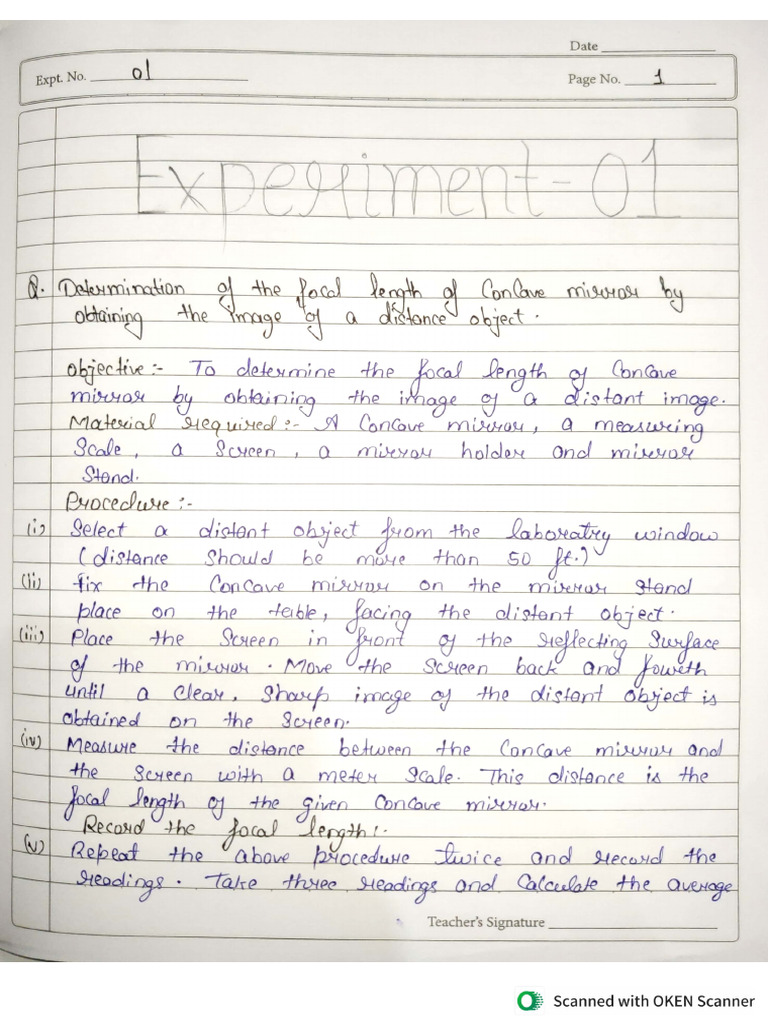 Date
Expt. No. 01
Page No. 1
Experiment-01
Q. Determination of the focal length of Concave mirror by
obtaining the image of a distance object.
Objective:- To determine the focal length of Concave
mirror by obtaining the image of a distant image.
Material required:- A Concave mirror, a measuring
Scale, a Screen, a mirror holder and mirror
Stand.
Procedure:-
(i) Select a distant object from the laboratry window
(distance should be more than 50 ft.)
(ii) fix the Concave mirror on the mirror stand
place on the table, facing the distant object.
(iii) Place the Screen in front of the reflecting Surface
of the mirror. Move the Screen back and foweth
until a clear, sharp image of the distant object is
obtained on the Screen.
(iv) Measure the distance between the Concave mirror and
the Screen with a meter Scale. This distance is the
focal length of the given Concave mirror.
Record the focal length:-
(v) Repeat the above procedure twice and record the
readings. Take three readings and Calculate the average
Teacher's Signature
Scanned with OKEN Scanner